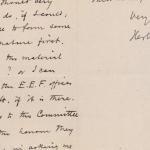 very
do, if I could,
to form some
nature first.
the material
? or I can
the E.E.F. offices
it, if it is there.
to this Committee
the honour they
me in asking me
Very
Herb